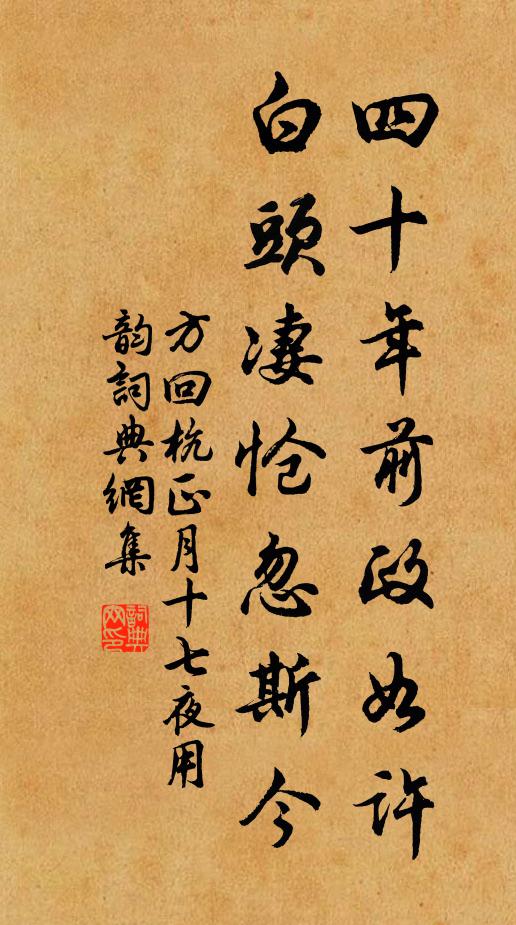 四十年前政如许
白頭凄怆忽斯今
方回杭正月十七夜用
韵詞典網集
詞典
网印